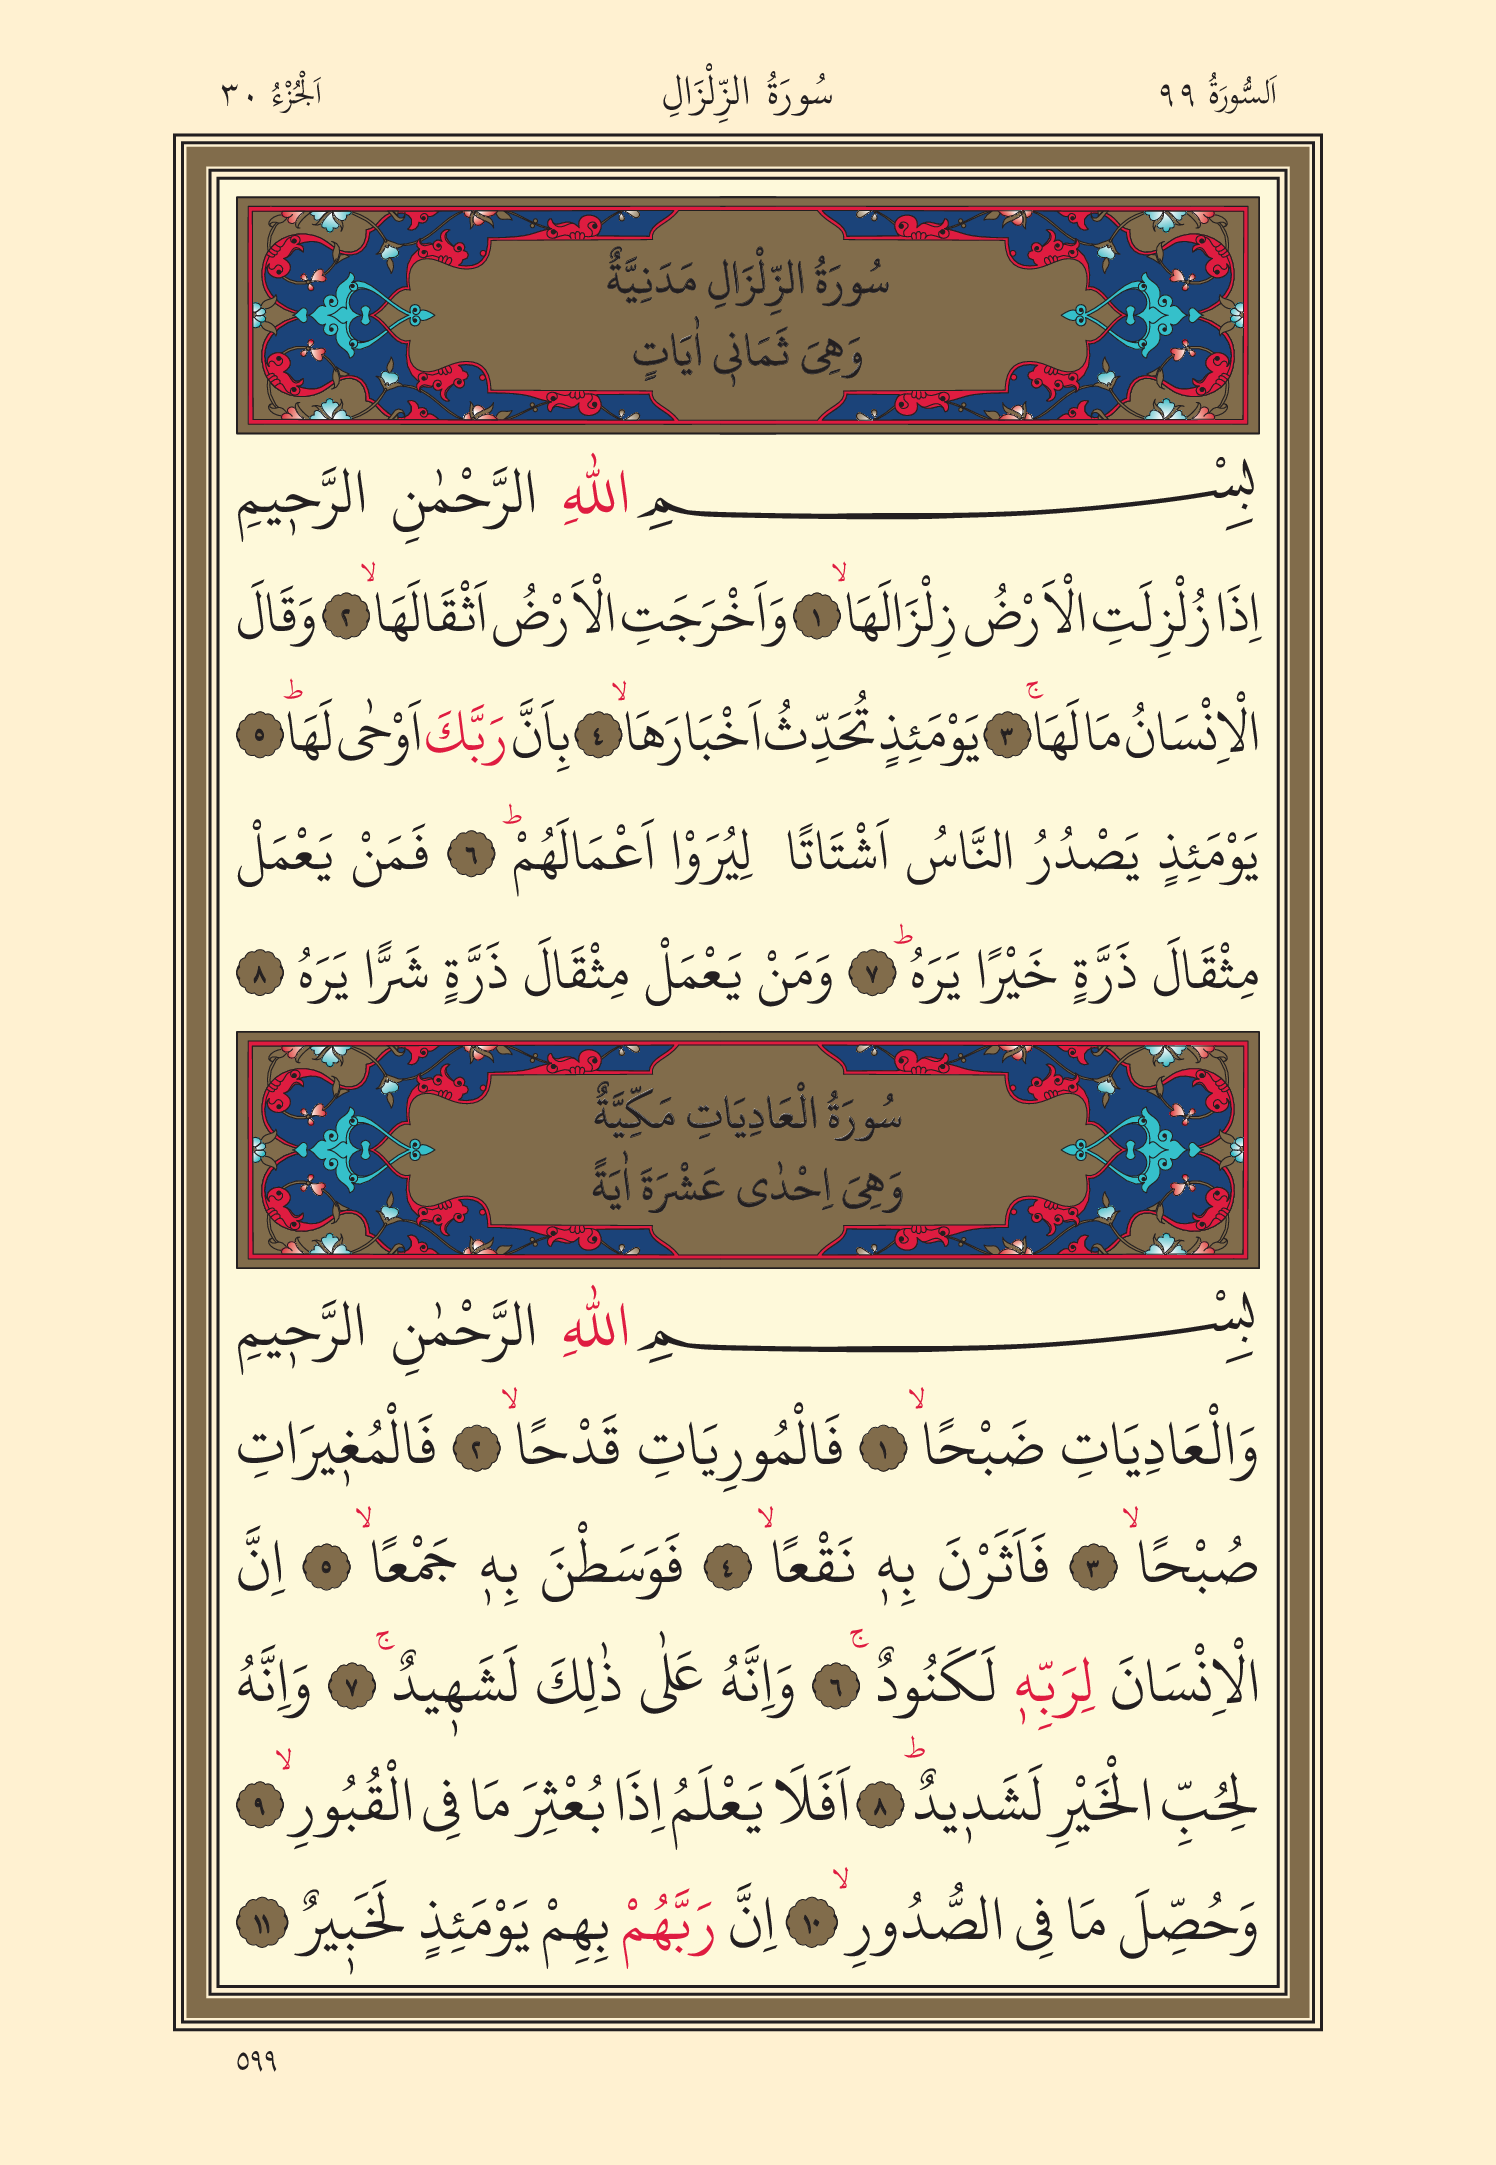 اَلسُّورَةُ ٩٩ سُورَةُ الزِّلْزَالِ اَلْجُزْءُ ٣٠
سُورَةُ الزِّلْزَالِ مَدَنِيَّةٌ
وَهِىَ ثَمَانٖى اٰيَاتٍ
بِسْمِ اللّٰهِ الرَّحْمٰنِ الرَّحٖيمِ
اِذَا زُلْزِلَتِ الْاَرْضُ زِلْزَالَهَاۙ ١ وَاَخْرَجَتِ الْاَرْضُ اَثْقَالَهَاۙ ٢ وَقَالَ
الْاِنْسَانُ مَا لَهَاۚ ٣ يَوْمَئِذٍ تُحَدِّثُ اَخْبَارَهَاۙ ٤ بِاَنَّ رَبَّكَ اَوْحٰى لَهَاؕ ٥
يَوْمَئِذٍ يَصْدُرُ النَّاسُ اَشْتَاتًا لِيُرَوْا اَعْمَالَهُمْؕ ٦ فَمَنْ يَعْمَلْ
مِثْقَالَ ذَرَّةٍ خَيْرًا يَرَهُؕ ٧ وَمَنْ يَعْمَلْ مِثْقَالَ ذَرَّةٍ شَرًّا يَرَهُ ٨
سُورَةُ الْعَادِيَاتِ مَكِّيَّةٌ
وَهِىَ اِحْدٰى عَشْرَةَ اٰيَةً
بِسْمِ اللّٰهِ الرَّحْمٰنِ الرَّحٖيمِ
وَالْعَادِيَاتِ ضَبْحًاۙ ١ فَالْمُورِيَاتِ قَدْحًاۙ ٢ فَالْمُغٖيرَاتِ
صُبْحًاۙ ٣ فَاَثَرْنَ بِهٖ نَقْعًاۙ ٤ فَوَسَطْنَ بِهٖ جَمْعًاۙ ٥ اِنَّ
الْاِنْسَانَ لِرَبِّهٖ لَكَنُودٌۚ ٦ وَاِنَّهُ عَلٰى ذٰلِكَ لَشَهٖيدٌۚ ٧ وَاِنَّهُ
لِحُبِّ الْخَيْرِ لَشَدٖيدٌؕ ٨ اَفَلَا يَعْلَمُ اِذَا بُعْثِرَ مَا فِى الْقُبُورِۙ ٩
وَحُصِّلَ مَا فِى الصُّدُورِۙ ١٠ اِنَّ رَبَّهُمْ بِهِمْ يَوْمَئِذٍ لَخَبٖيرٌ ١١
٥٩٩